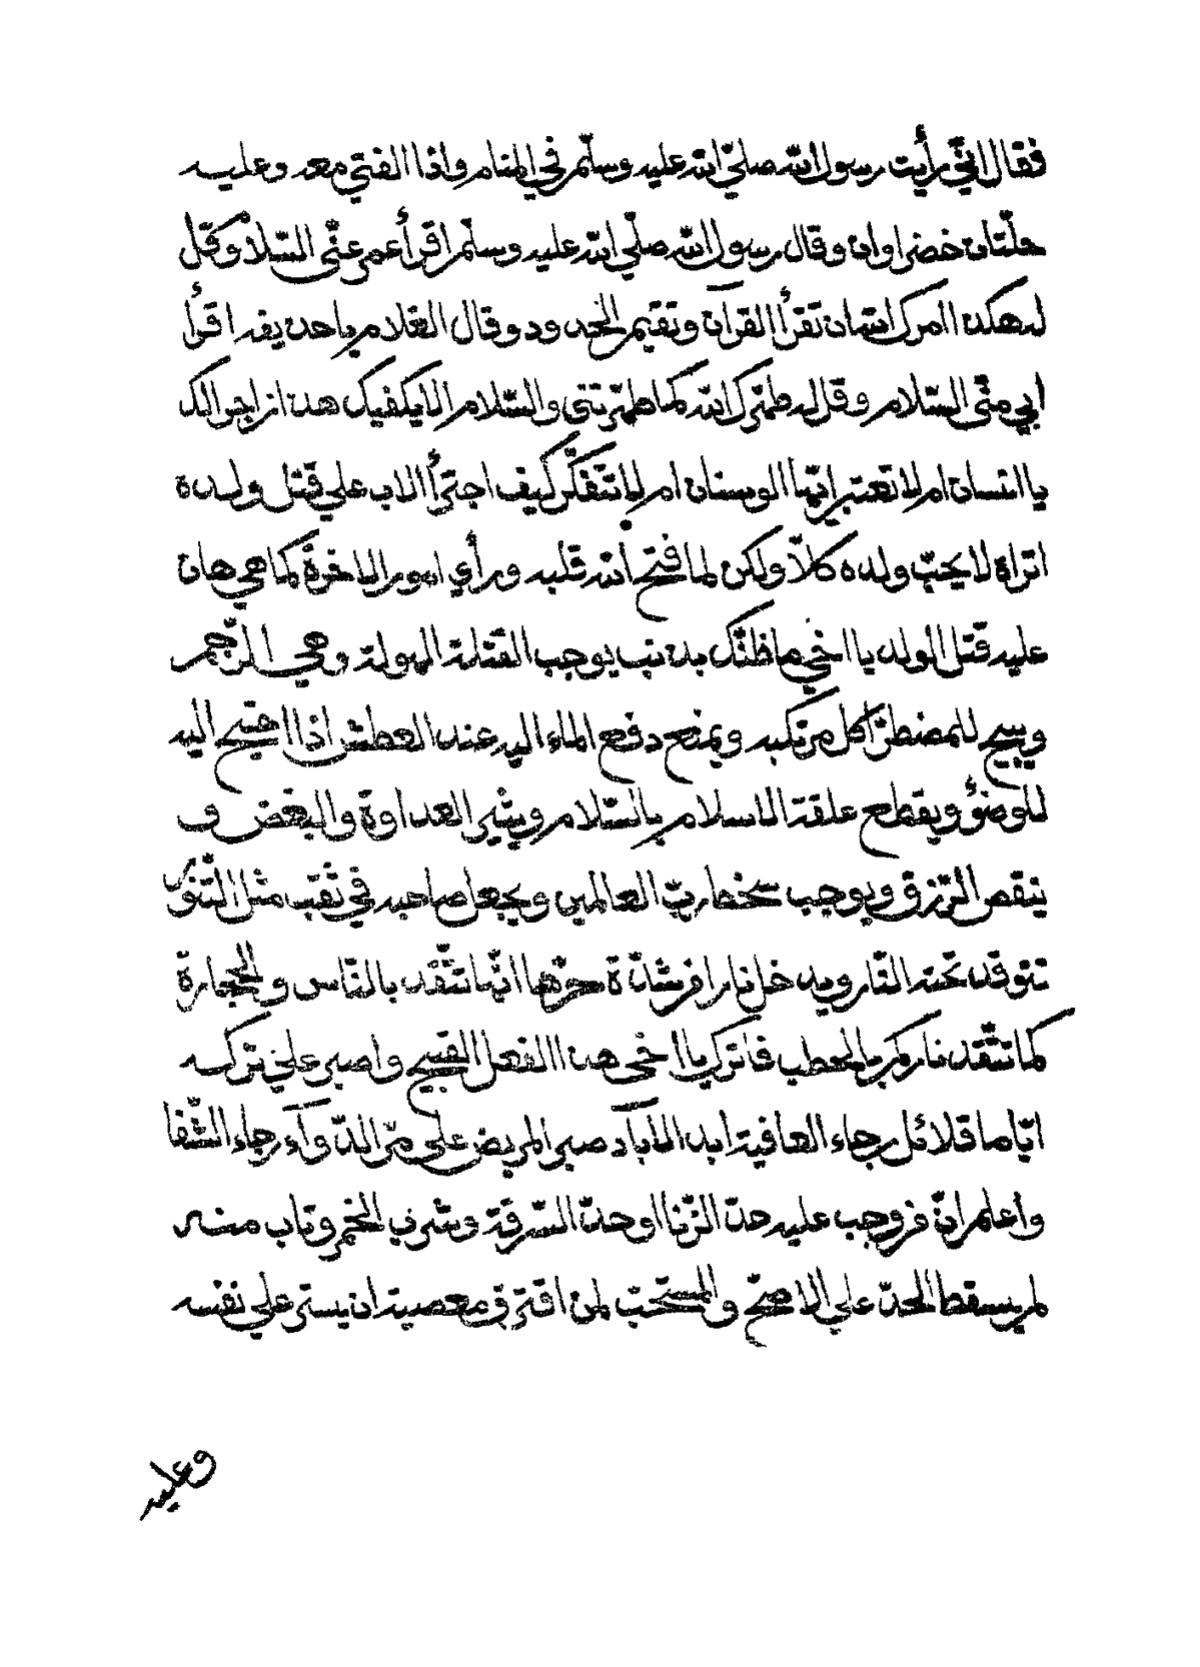 فقال انّي رأيت رسول الله صلّي الله عليه وسلّم في المنام واذا الفتي معه وعليه
حلّتان خضراوان وقال رسول الله صلّي الله عليه وسلّم اقرأ عمر عنّى السّلام وقل
له هكذا امرك الله ان تقرأ القرآن وتقيم الحدود وقال الغلام يا حذيفه اقرأ
ابي منّى السّلام وقل له طهّرك الله كما طهّرتنى والسّلام الا يكفيك هذا زاجرا لك
يا انسان ام لا تعتبر ايّها الوسنان ام لا تتفكّر كيف اجترأ الاب علي قتل ولده
اتراه لا يحبّ ولده كلّا ولكن لما فتح الله قلبه ورأي امور الاخرة كما هي هان
عليه قتل الولد يا اخي ما ظنّك بذنب يوجب القتلة المهولة وهي الرّجم
ويبيح للمضطرّ اكل مرتكبه ويمنع دفع الماء اليه عند العطش اذا احتيج اليه
للوضؤ ويقطع علقة الاسلام بالسّلام ويثير العداوة والبغض و
ينقص الرّزق ويوجب سخط ربّ العالمين ويجعل صاحبه في ثقب مثل التّنّور
تتوقد تحته النّار ويدخل نارا فرشدّة حرّها انّها تتّقد بالنّاس والحجارة
كما تتّقد ناركم بالحطب فاترك يا اخى هذا الفعل القبيح واصبر علي تركه
ايّاما قلائل رجاء العافية ابد الآباد صبر المريض على مرّ الدّوآء رجاء الشّفا
وأعلم انّ من وجب عليه حدّ الزّنا او حدّ السّرقة وشرب الخمر وتاب منه
لم يسقط الحدّ علي الاصحّ والمستحبّ لمن اقترف معصية ان يستر علي نفسه
وعليه